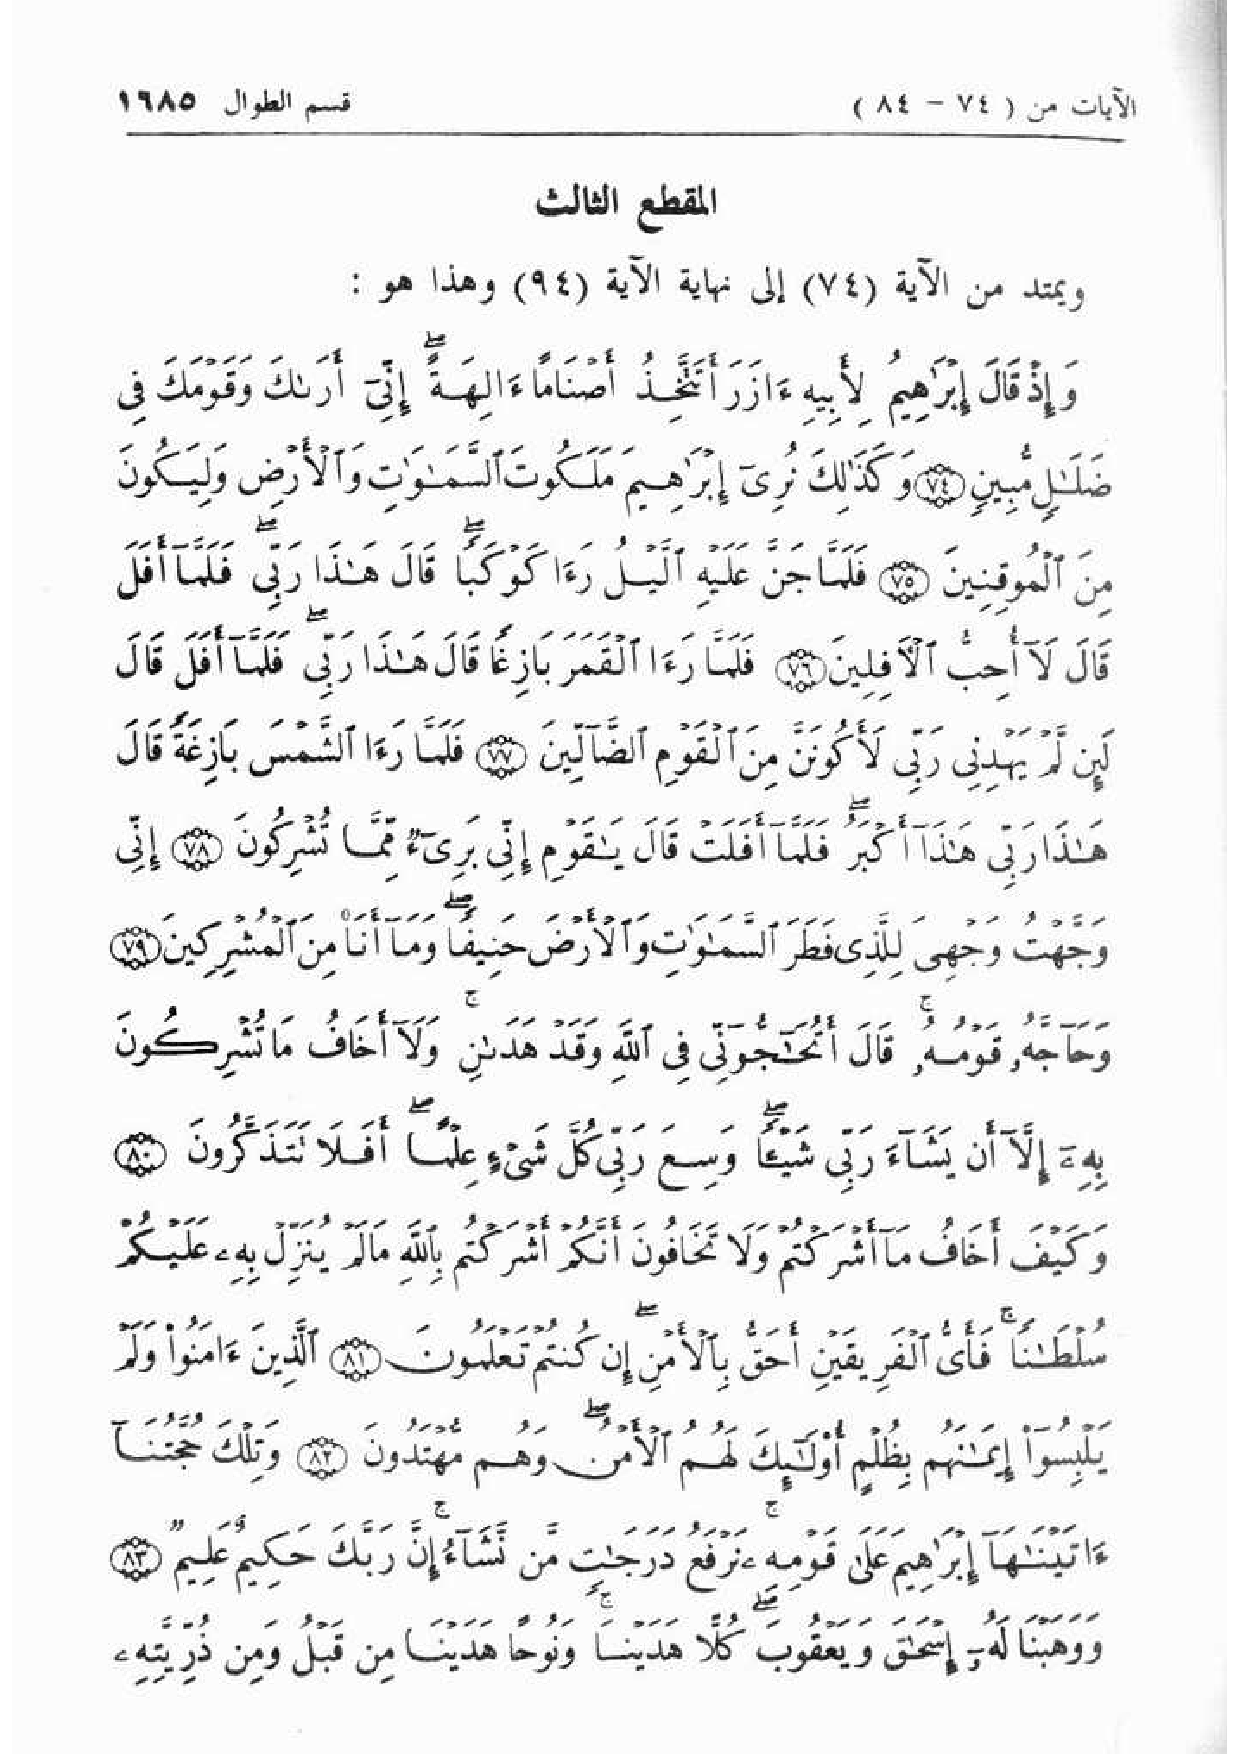 الآيات من ( ٧٤ - ٨٤ ) قسم الطوال ١٦٨٥
المقطع الثالث
ويمتد من الآية (٧٤) إلى نهاية الآية (٩٤) وهذا هو :
وَإِذْ قَالَ إِبْرَٰهِيمُ لِأَبِيهِ ءَازَرَ أَتَتَّخِذُ أَصْنَامًا ءَالِهَةً ۖ إِنِّىٓ أَرَىٰكَ وَقَوْمَكَ فِى
ضَلَٰلٍ مُّبِينٍ ﴿٧٤﴾ وَكَذَٰلِكَ نُرِىٓ إِبْرَٰهِيمَ مَلَكُوتَ ٱلسَّمَٰوَٰتِ وَٱلْأَرْضِ وَلِيَكُونَ
مِنَ ٱلْمُوقِنِينَ ﴿٧٥﴾ فَلَمَّا جَنَّ عَلَيْهِ ٱلَّيْلُ رَءَا كَوْكَبًا ۖ قَالَ هَٰذَا رَبِّى ۖ فَلَمَّآ أَفَلَ
قَالَ لَآ أُحِبُّ ٱلْأَفِلِينَ ﴿٧٦﴾ فَلَمَّا رَءَا ٱلْقَمَرَ بَازِغًا قَالَ هَٰذَا رَبِّى ۖ فَلَمَّآ أَفَلَ قَالَ
لَئِن لَّمْ يَهْدِنِى رَبِّى لَأَكُونَنَّ مِنَ ٱلْقَوْمِ ٱلضَّآلِّينَ ﴿٧٧﴾ فَلَمَّا رَءَا ٱلشَّمْسَ بَازِغَةً قَالَ
هَٰذَا رَبِّى هَٰذَآ أَكْبَرُ ۖ فَلَمَّآ أَفَلَتْ قَالَ يَٰقَوْمِ إِنِّى بَرِىٓءٌ مِّمَّا تُشْرِكُونَ ﴿٧٨﴾ إِنِّى
وَجَّهْتُ وَجْهِىَ لِلَّذِى فَطَرَ ٱلسَّمَٰوَٰتِ وَٱلْأَرْضَ حَنِيفًا ۖ وَمَآ أَنَا۠ مِنَ ٱلْمُشْرِكِينَ ﴿٧٩﴾
وَحَآجَّهُۥ قَوْمُهُۥ ۚ قَالَ أَتُحَٰٓجُّوٓنِّى فِى ٱللَّهِ وَقَدْ هَدَىٰنِ ۚ وَلَآ أَخَافُ مَا تُشْرِكُونَ
بِهِۦٓ إِلَّآ أَن يَشَآءَ رَبِّى شَيْـًٔا ۖ وَسِعَ رَبِّى كُلَّ شَىْءٍ عِلْمًا ۖ أَفَلَا تَتَذَكَّرُونَ ﴿٨٠﴾
وَكَيْفَ أَخَافُ مَآ أَشْرَكْتُمْ وَلَا تَخَافُونَ أَنَّكُمْ أَشْرَكْتُم بِٱللَّهِ مَا لَمْ يُنَزِّلْ بِهِۦ عَلَيْكُمْ
سُلْطَٰنًا ۚ فَأَىُّ ٱلْفَرِيقَيْنِ أَحَقُّ بِٱلْأَمْنِ ۖ إِن كُنتُمْ تَعْلَمُونَ ﴿٨١﴾ ٱلَّذِينَ ءَامَنُوا۟ وَلَمْ
يَلْبِسُوٓا۟ إِيمَٰنَهُم بِظُلْمٍ أُو۟لَٰٓئِكَ لَهُمُ ٱلْأَمْنُ ۖ وَهُم مُّهْتَدُونَ ﴿٨٢﴾ وَتِلْكَ حُجَّتُنَآ
ءَاتَيْنَٰهَآ إِبْرَٰهِيمَ عَلَىٰ قَوْمِهِۦ ۚ نَرْفَعُ دَرَجَٰتٍ مَّن نَّشَآءُ ۚ إِنَّ رَبَّكَ حَكِيمٌ عَلِيمٌ ﴿٨٣﴾
وَوَهَبْنَا لَهُۥٓ إِسْحَٰقَ وَيَعْقُوبَ ۖ كُلًّا هَدَيْنَا ۚ وَنُوحًا هَدَيْنَا مِن قَبْلُ وَمِن ذُرِّيَّتِهِۦ